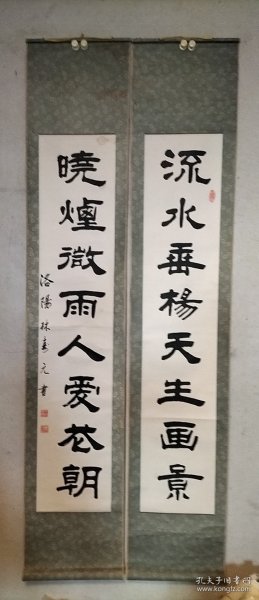 流水垂楊天生画景
曉煙微雨人愛花朝
洛陽林書
孔夫子旧书网
www.kongfz.com